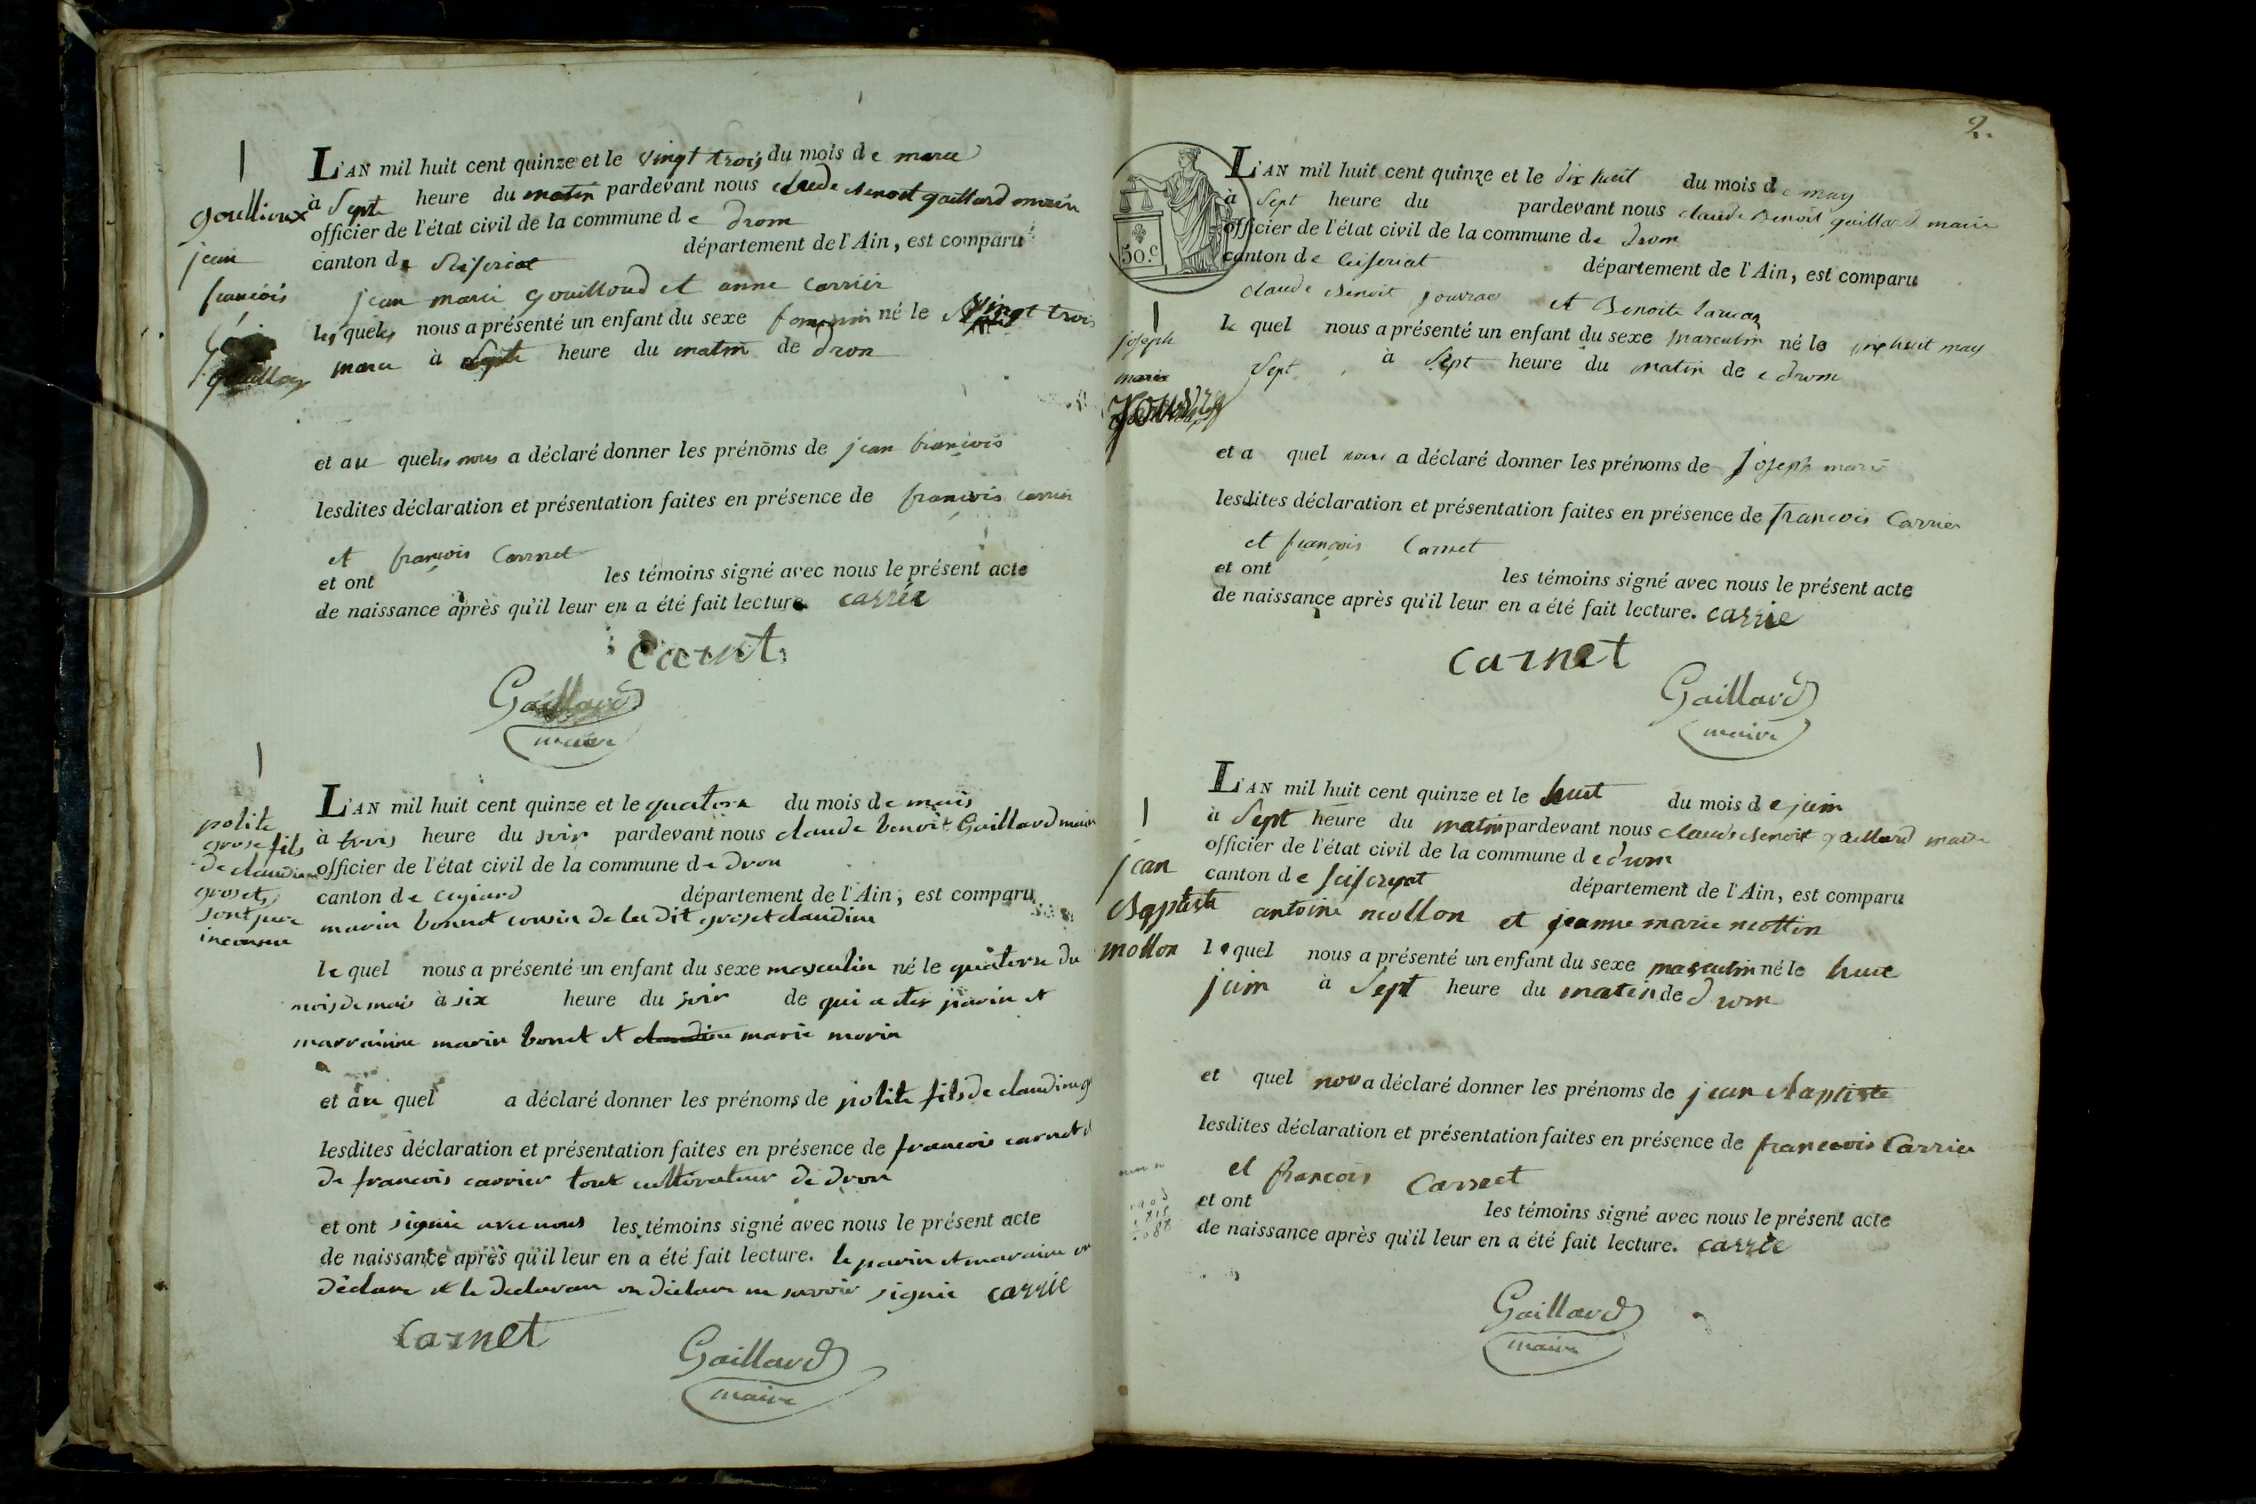 goullioux
jean
françois
L'AN mil huit cent quinze et le vingt trois du mois de marce
à Septe heure du matin pardevant nous claude benoit gaillard maire
officier de l'état civil de la commune de drom
canton de département de l'Ain, est comparu
jean marie gouilloud et anne carrier
lesquels nous a présenté un enfant du sexe né le vingt trois
marce à Septe heure du matin de dron
et au quels nous a déclaré donner les prénoms de jean francois
lesdites déclaration et présentation faites en présence de francois carrier
et françois Carnet
et ont les témoins signé avec nous le présent acte
de naissance après qu'il leur en a été fait lecture. carrié
carnet
Gaillard
maire
polite
grose fils
de claudine
groset
sont pere
inconnue
L'AN mil huit cent quinze et le quatorze du mois de mais
à trois heure du soir pardevant nous claude benoit Gaillard maire
officier de l'état civil de la commune de dron
canton de département de l'Ain, est comparu
marin bonnet cousin de la dit groset claudine
le quel nous a présenté un enfant du sexe masculin né le quatorze du
mois de mais à six heure du soir de qui a eter parin et
marrainne marin bonet et claudine marie morin
et au quel a déclaré donner les prénoms de polite fils de claudine g
lesdites déclaration et présentation faites en présence de francois carnet
de francois carrier tout cultivateur de dron
et ont signie avec nous les témoins signé avec nous le présent acte
de naissance après qu'il leur en a été fait lecture. le parin et maraine on
déclare et le declarant on déclare ne savoir signie carrie
carnet
Gaillard
maire
2.
50.c
joseph
marie
L'AN mil huit cent quinze et le dix huit du mois de may
à Sept heure du pardevant nous claude Benoit gaillard maire
officier de l'état civil de la commune de drom
canton de Ceiseriat département de l'Ain, est comparu
claude Benoit et Benoite
le quel nous a présenté un enfant du sexe masculin né le dix huit may
Sept à Sept heure du matin de drom
et a quel nous a déclaré donner les prénoms de joseph marie
lesdites déclaration et présentation faites en présence de francois Carrier
et françois Carnet
et ont les témoins signé avec nous le présent acte
de naissance après qu'il leur en a été fait lecture. carrie
carnet
Gaillard
maire
jean
Baptiste
mollon
L'AN mil huit cent quinze et le huit du mois de juin
à Sept heure du matin pardevant nous claude Benoit gaillard maire
officier de l'état civil de la commune de drom
canton de département de l'Ain, est comparu
antoine mollon et jeanne marie
le quel nous a présenté un enfant du sexe masculin né le huit
juin à Sept heure du matin de drom
et quel nous a déclaré donner les prénoms de jean Baptiste
lesdites déclaration et présentation faites en présence de francois Carrier
et francois Carnet
et ont les témoins signé avec nous le présent acte
de naissance après qu'il leur en a été fait lecture. carrie
Gaillard
maire